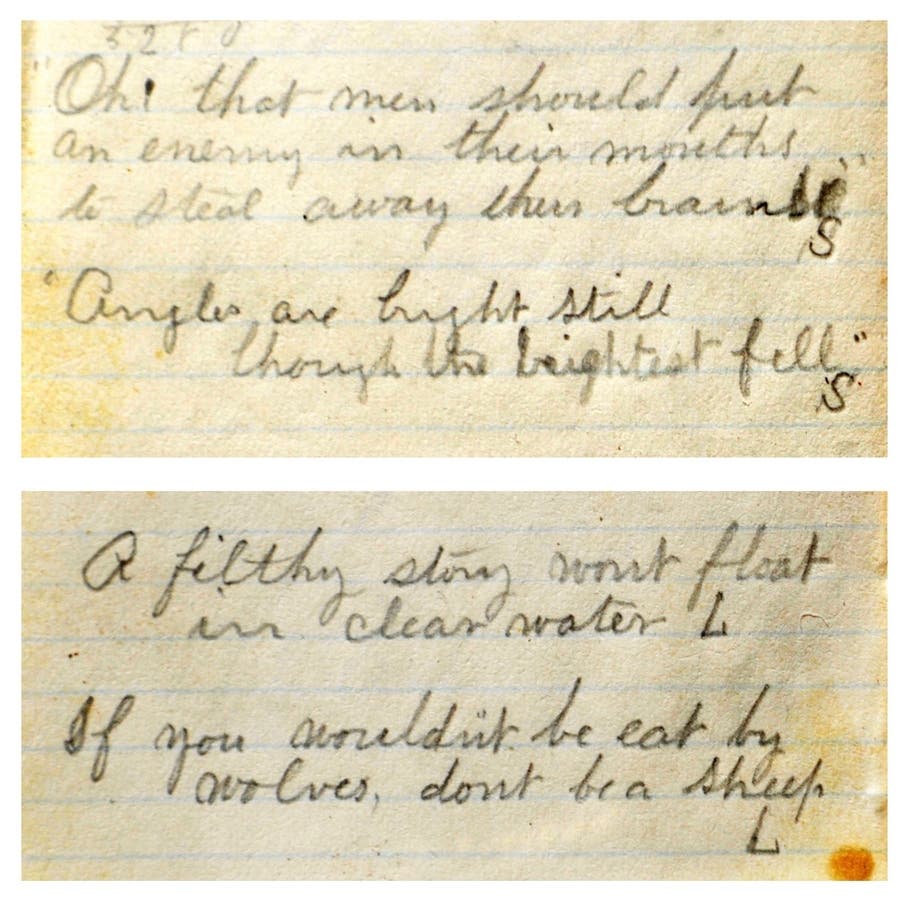 "Oh! that men should put
an enemy in their mouths
to steal away their brains"
S
"Angles are bright still
though the brightest fell"
S
A filthy story wont float
in clear water L
If you wouldn't be eat by
wolves, dont be a sheep
L